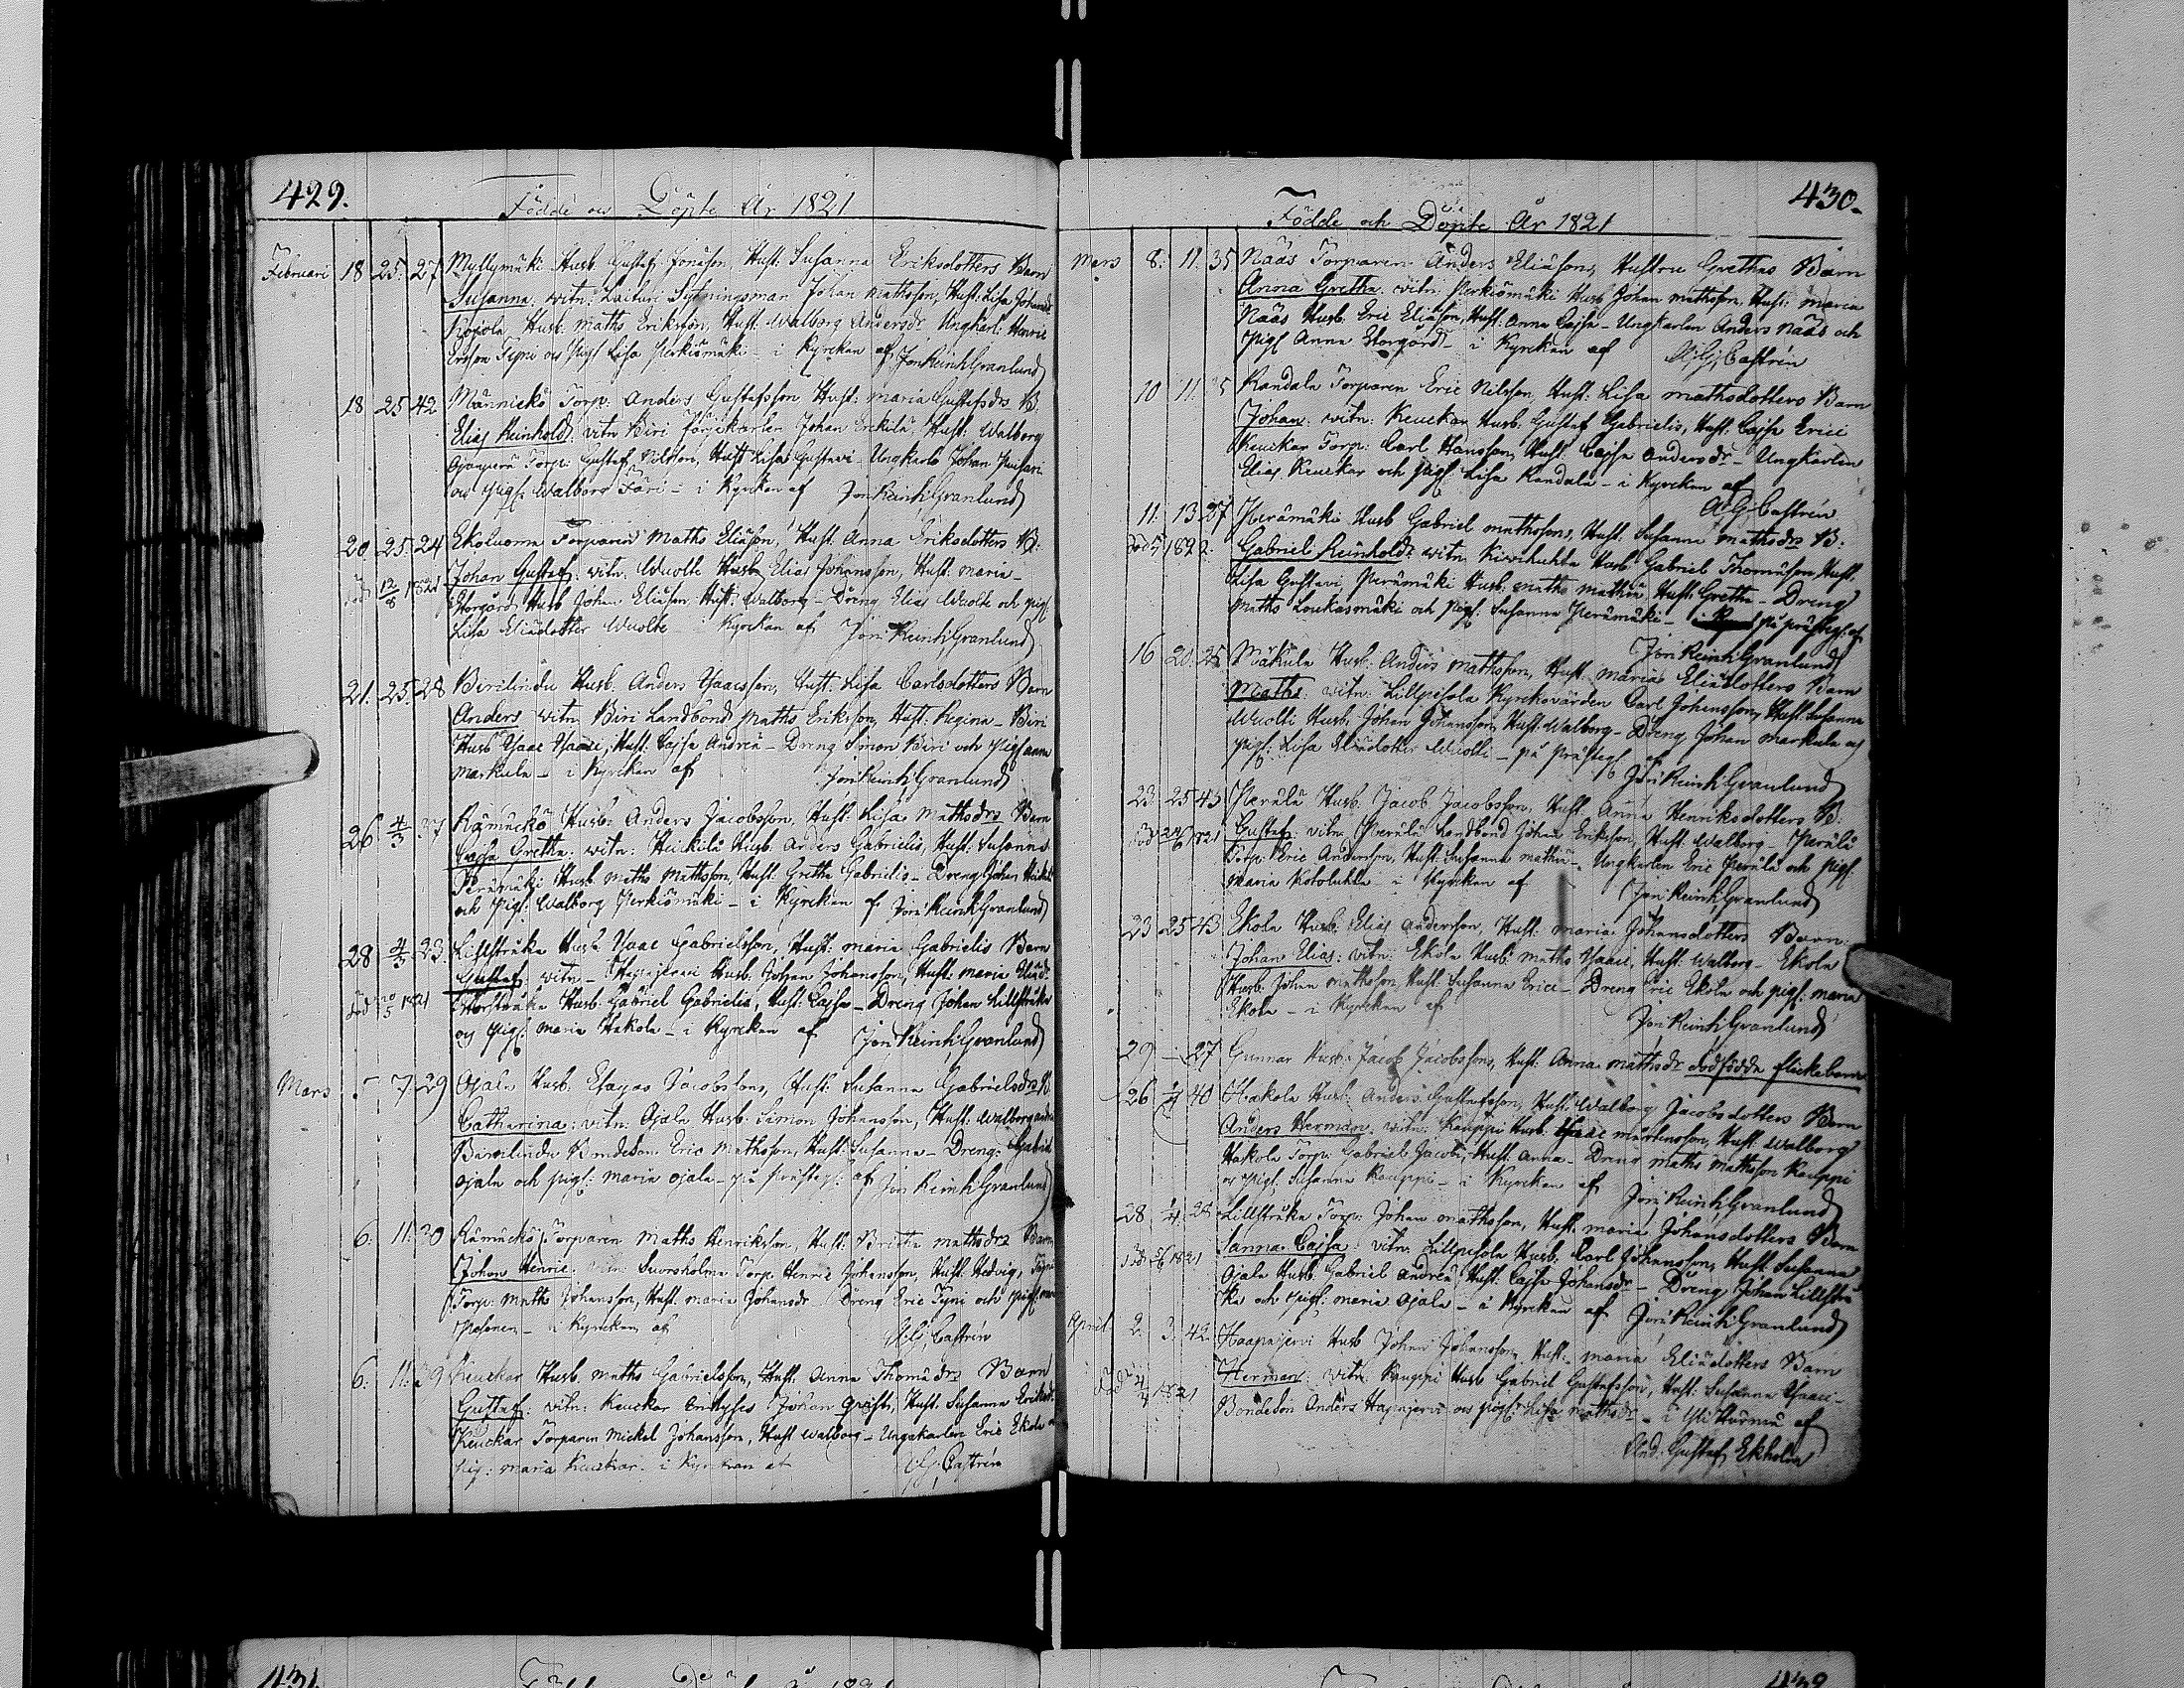 429.
Födde och Döpte År 1821
Februari 18 25. 27 Myllymäki Husb. Gustaf Jonasson, Hust: Susanna Eriksdotters Barn
Susanna. vitn: Laituri Sytningsman Johan Mathsson, Hust: Lisa Johansdr
Kojola Husb: Maths Eriksson, Hust: Walborg Andersdr. Ungkarl: Henric
Ersson Tyni och Pig: Lisa Perkiömäki - i Kyrckan af Jon Reinh: Granlund
18 25 42 Männickö Torp. Anders Gustafsson Hust: Maria Gustafsdrs B.
Elias Reinhold. vitn Biri Färjekarlen Johan Erkilä Hust: Walborg
Torp: Gustaf Nilsson, Hust Lisa Gustavi - Ungkarl Johan
och Pig: Walborg Färi - i Kyrckan af Jon Reinh: Granlund
20 25. 24 Ekoluoma Torparen Maths Eliasson, Hust. Anna Eriksdotters B:
död 12/8 1821 Johan Gustaf: vitn: Wuolte Husb Elias Johansson, Hust: Maria -
Storgård Husb Johan Eliasson Hust: Walborg - Dreng Elias Wuolte och Pig
Lisa Eliædotter Wuolte - i Kyrckan af Jon Reinh: Granlund
21. 25. 28 Birilindu Husb. Anders Ysaacsson, Hust: Lisa Carlsdotters Barn
Anders vitn. Biri Landbond Maths Eriksson, Hust: Regina - Biri
Husb Ysaac Ysaaci, Hust: Cajsa Andreæ - Dreng Simon Biri och Pig Anna
Markula - i Kyrckan af Jon Reinh: Granlund
26 4/3 37 Rämäckö Husb: Anders Jacobsson, Hust: Lisa Mathsdrs Barn
Cajsa Gretha. vitn: Heickilä Husb. Anders Gabrielis, Hust: Susanna
Perämäki Husb. Maths Mathsson, Hust: Gretha Gabrielis - Dreng Johan
och Pig: Walborg Perkiömäki - i Kyrckan af Jon Reinh: Granlund
28 4/3 23. Lillstråka Husb Ysaac Gabrielsson, Hust: Maria Gabrielis Barn
Gustaf vitn - Haapajervi Husb. Johan Johansson, Hust: Maria Eliædr
död 20/5 1821 Storstråka Husb. Gabriel Gabrielis, Hust: Cajsa - Dreng Johan Lillstråka
och Pig: Maria Hakola - i Kyrckan af Jon Reinh: Granlund
Mars 5 7. 29 Ojala Husb. Esayas Jacobssons, Hust: Susanna Gabrielsdrs B
Catharina; vitn: Ojala Husb. Simon Johansson, Hust: Walborg
Birilindu Bondeson Eric Mathsson, Hust: Susanna - Dreng: Gabriel
Ojala och Pig: Maria Ojala - på Prästeg: af Jon Reinh: Granlund
6: 11: 30 Rämäckö Torparen Maths Henriksson, Hust: Britha Mathsdrs Barn
Johan Henric. vitn Torp Henric Johansson, Hust: Hedvig, Tyni
Torp: Maths Johansson, Hust. Maria Johansdr Dreng Eric Tyni och Pig
Pesonen - i Kyrckan af A: G: Castrén
6: 11: 39 Keuckar Husb. Maths Gabrielsson, Hust. Anna Thomædrs Barn
Gustaf: vitn: Keuckar Johan Hust. Susanna Eriksdr
Keuckar Torparen Mickel Johansson, Hust Walborg - Ungakarlen Eric Ekola
Pig: Maria Keuckar. i Kyrckan af A:G: Castrén
430.
Födde och Döpte År 1821
Mars 8: 11: 35 Näås Torparen Anders Eliæsons, Hustru Grethas Barn
Anna Gretha. vitn: Perkiömäki Husb Johan Mathsson, Hust: Maria
Näås Husb. Eric Eliæson, Hust: Anna Cajsa - Ungkarlen Anders Näås och
Pig Anna Storgård - i Kyrckan af A:G: Castrén
10 11. Randala Torparen Eric Nilsson, Hust. Lisa Mathsdotters Barn
Johan. vitn: Keuckar Husb. Gustaf Gabrielis, Hust: Cajsa Erici
Keuckar Torp: Carl Hansson, Hust: Cajsa Andersdr - Ungkarlen
Elias Keuckar och Pig Lisa Randala - i Kyrckan af
A:G: Castrén
11. 13 27 Perämäki Husb Gabriel Mathssons, Hust: Susanna Mathsdrs B:
Gabriel Reinhold: vitn: Kiviluhta Husb Gabriel Thomæson, Hust:
Lisa Gustavi Perämäki Husb. Maths Mathiæ Hust: Gretha - Dreng
Maths Loukasmäki och Pig: Susanna Perämäki - på Prästeg: af
Jon Reinh: Granlund
16 20. 25 Mäkula Husb: Anders Mathsson, Hust: Maria Eliædotters Barn
Maths: vitn: Lillpesola Kyrckovärden Carl Johansson, Hust. Susanna
Wuolti Husb. Johan Johansson Hust: Walborg - Dreng Johan Markula och
Pig: Lisa Eliædotter Wuolti - på Prästeg af
Jon Reinh: Granlund
23 25 43 Perälä Husb: Jacob Jacobsson, Hust Anna Henriksdotters B:
död 24/6 1821 Gustaf: vitn: Perälä Landbond Johan Eriksson, Hust: Walborg - Perälä
Torp: Eric Andersson, Hust: Susanna Mathiæ - Ungkarlen Eric Perälä och Pig:
Maria Kotoluhta - i Kyrckan af Jon Reinh: Granlund
23 25 43 Ekola Husb: Elias Andersson, Hust: Maria Johansdotters Barn:
Johan Elias: vitn: Ekola Husb: Maths Ysaaci, Hust: Walborg - Ekola
Husb: Johan Mathsson, Hust: Susanna Erici - Dreng Eric Ekola och Pig: Maria
Ekola - i Kyrckan af Jon Reinh: Granlund
29 - 27 Gunnar Husb: Jacob Jacobssons, Hust: Anna Mathsdr dödfödda flickebarn
26 1/4 40 Hakola Husb: Anders Gustafsson, Hust: Walborg Jacobsdotters Barn
Anders Herman. vitn: Kauppi Husb. Ysaac Mårtensson, Hust: Walborg
Hakola Torp: Gabriel Jacobi, Hust. Anna - Dreng Maths Mathsson Kauppi
och Pig: Susanna Kauppi - i Kyrckan af Jon Reinh: Granlund
28 1/4 28 Lillstråka Torp: Johan Mathsson, Hust: Maria Johansdotters Barn
Sanna Cajsa: vitn: Lillpesola Husb: Carl Johansson, Hust: Susanna
Ojala Husb: Gabriel Andreæ Hust: Cajsa Johansdr - Dreng Johan Lillstrå
ka och Pig: Maria Ojala - i Kyrckan af Jon Reinh: Granlund
April 2. 3. 42. Haapajervi Husb Johan Johansson Hust: Maria Eliædotters Barn
Herman: vitn: Kauppi Husb Gabriel Gustafsson, Hust: Susanna Ysaaci -
Bondeson Anders Hapajervi och Pig: Lisa Mathsdr - i af
And: Gustaf Ekholm
431
432